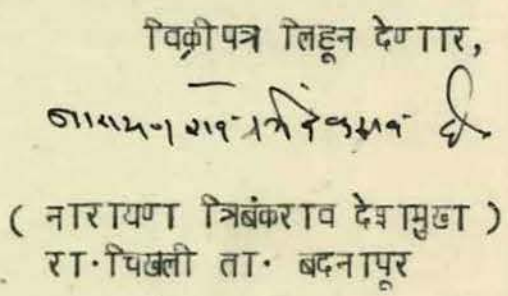 विक्रीपत्र लिहून देणार,
( नारायण त्रिबंकराव देशमुख )
रा.चिखली ता. बदनापूर